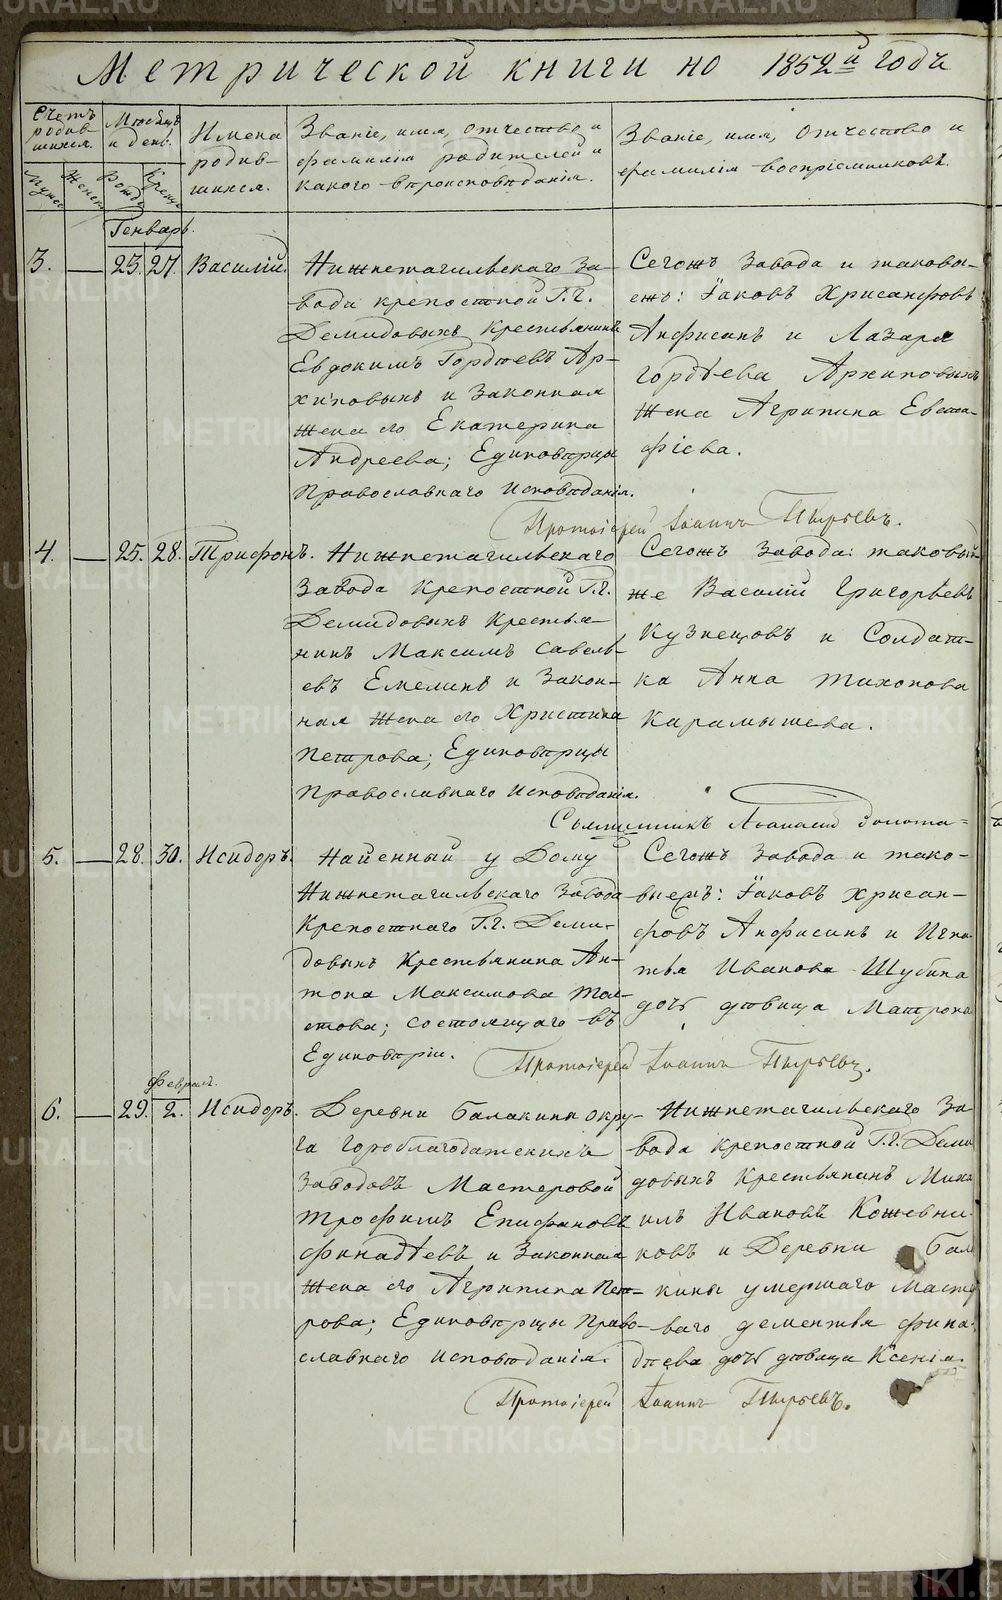 Метрической книги на 1852й годъ
Счетъ родив-шихся.
Мужес Женск
Мѣсяцъ и день.
Рожд Крещ
Имена родив-шихся.
Званіе, имя, отчество и фамилія родителей и какого вѣроисповѣданія.
Званіе, имя, отчество и фамилія воспріемниковъ.
Генварь.
3. — 23. 27. Василій.
Нижнетагильскаго За-
вода крепостной Г.г.
Демидовыхъ Крестьянинъ
Евдокимъ Гордѣевъ Ар-
хиповыхъ и Законная
жена его Екатерина
Андреева; Единовѣрцы
Православнаго Исповѣданія.
Сегожъ Завода и таковы-
ежъ: Іаковъ Хрисанфовъ
Анфисинъ и Лазаря
Гордѣева Архиповыхъ
Жена Агрипина Евста-
фіева.
Протоіерей Іоаннъ Пырьевъ.
4. — 25. 28. Трифонъ.
Нижнетагильскаго
Завода Крепостной Г.г.
Демидовыхъ Крестья-
нинъ Максимъ Савель-
евъ Емелинъ и Закон-
ная жена его Христина
Петрова; Единовѣрцы
Православнаго Исповѣданія.
Сегожъ Завода: таковый-
же Василій Григорьевъ
Кузнецовъ и Солдат-
ка Анна Тихонова
Карамышева.
Священникъ Аѳанасій Золота=
5. — 28. 30. Исидоръ.
Найденный у Дому
Нижнетагильскаго Завода
Крепостнаго Г.г. Деми-
довыхъ Крестьянина Ан-
тона Максимова Тол-
стова; состоящаго въ
Единовѣріи.
Сегожъ Завода и тако-
выежъ: Іаковъ Хрисан-
фовъ Анфисинъ и Игна
тья Иванова Шубина
дочь дѣвица Матрона
Протоіерей Іоаннъ Пырьевъ.
Феврал.
6. — 29. 2. Исидоръ.
Деревни Балакини окру-
га Гороблагодатскихъ
Заводовъ Мастеровой
Трофимъ Епифановъ
Финадѣевъ и Законная
жена его Агрипина Пет-
рова; Единовѣрцы Право-
славнаго Исповѣданія.
Нижнетагильскаго За
вода Крепостной Г.г. Деми
довыхъ Крестьянинъ Миха
илъ Ивановъ Кожевни-
ковъ и Деревни Бала
кины умершаго Масте
ваго Дементья Фина-
дѣева дочь дѣвица Ксенія.
Протоіерей Іоаннъ Пырьевъ.
METRIKI.GASO-URAL.RU